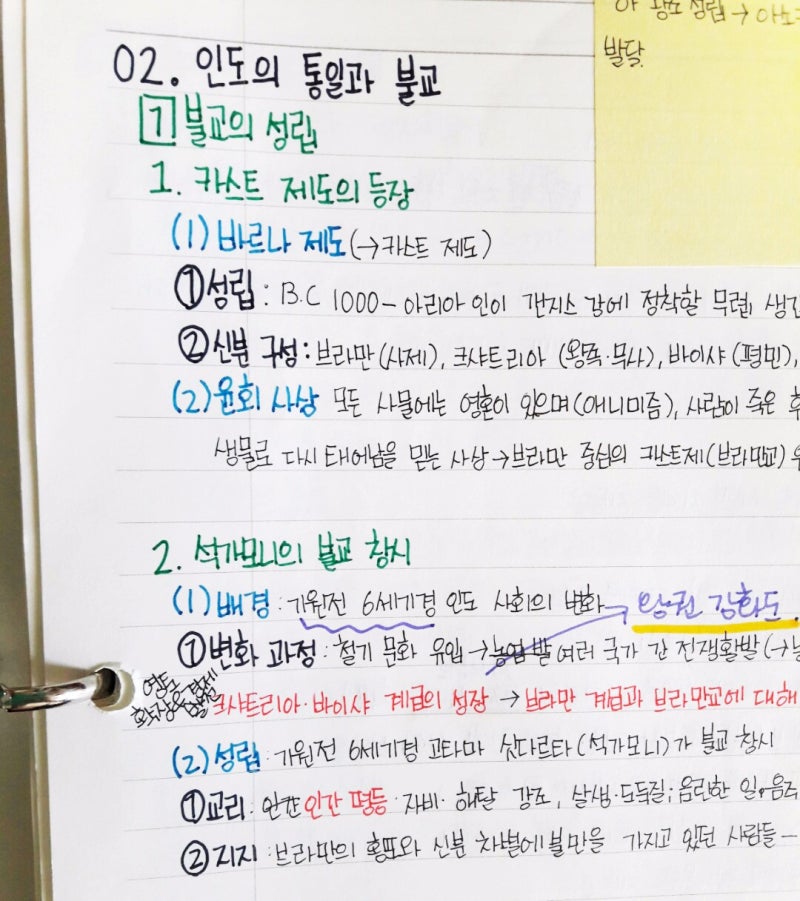 아 왕조 성립 → 아소
발달.
02. 인도의 통일과 불교
1 불교의 성립
1. 카스트 제도의 등장
(1) 바르나 제도(→카스트 제도)
①성립 : B.C 1000- 아리아 인이 갠지스 강에 정착할 무렵, 생
②신분 구성 : 브라만(사제), 크샤트리아 (왕족·무사), 바이샤 (평민),
(2) 윤회 사상 모든 사물에는 영혼이 있으며(애니미즘), 사람이 죽은 후
생물로 다시 태어남을 믿는 사상→브라만 중심의 카스트제(브라만교)
2. 석가모니의 불교 창시
(1) 배경 : 기원전 6세기경 인도 사회의 변화 → 왕권 강화도.
①변화 과정 : 철기 문화 유입→농업 발 여러 국가 간 전쟁활발 (→
영토
크샤트리아·바이샤 계급의 성장 → 브라만 계급과 브라만교에 대해
(2) 성립 : 기원전 6세기경 고타마 싯다르타(석가모니)가 불교 창시
①교리 : 인간 인간 평등·자비·해탈 강조, 살생·도둑질; 음란한 일, 음주
②지지 : 브라만의 횡포와 신분 차별에 불만을 가지고 있던 사람들 –